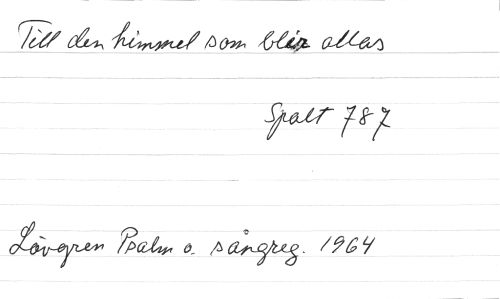 Till den himmel som blir allas
Spalt 787
Lövgren Psalm o. sångreg. 1964